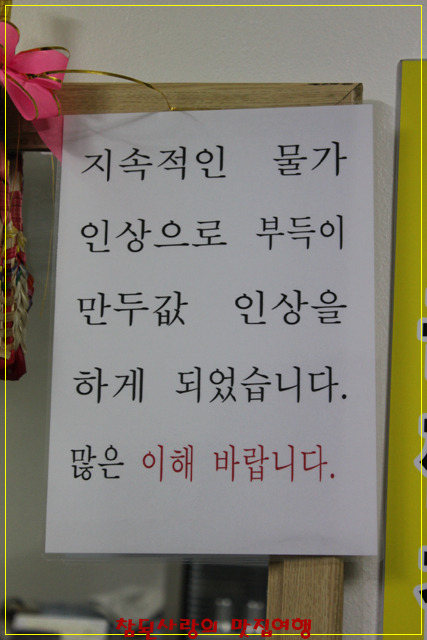 지속적인 물가
인상으로 부득이
만두값 인상을
하게 되었습니다.
많은 이해 바랍니다.
창문사랑의 맛집여행